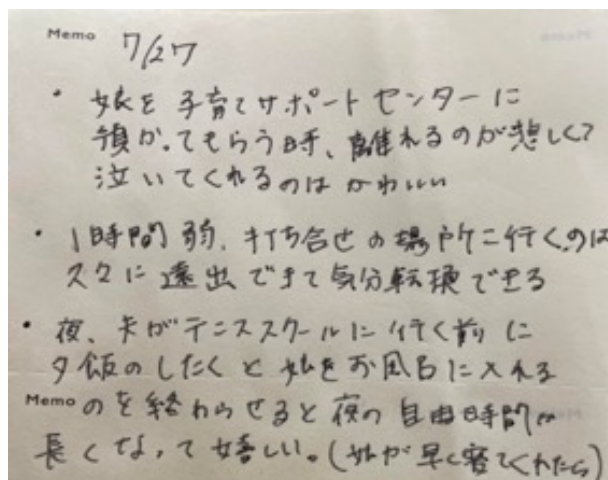 Memo 7/27
・娘を子育てサポートセンターに
預かってもらう時、離れるのが悲しくて
泣いてくれるのはかわいい
・1時間弱、打ち合せの場所に行くのは
スクに遠出できて気分転換できる
・夜、夫がテニススクールに行く前に
夕飯のしたくと娘をお風呂に入れる
Memo のを終わらせると夜の自由時間が
長くなって嬉しい。(娘が早く寝てくれたら)